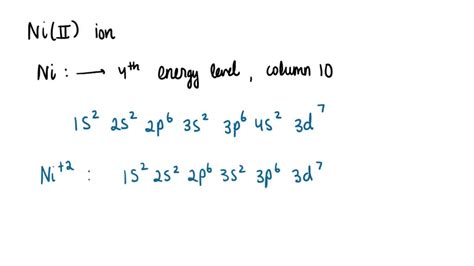 Ni(II) ion
Ni : → 4th energy level, column 10
1s² 2s² 2p⁶ 3s² 3p⁶ 4s² 3d⁷
Ni⁺² : 1s² 2s² 2p⁶ 3s² 3p⁶ 3d⁷